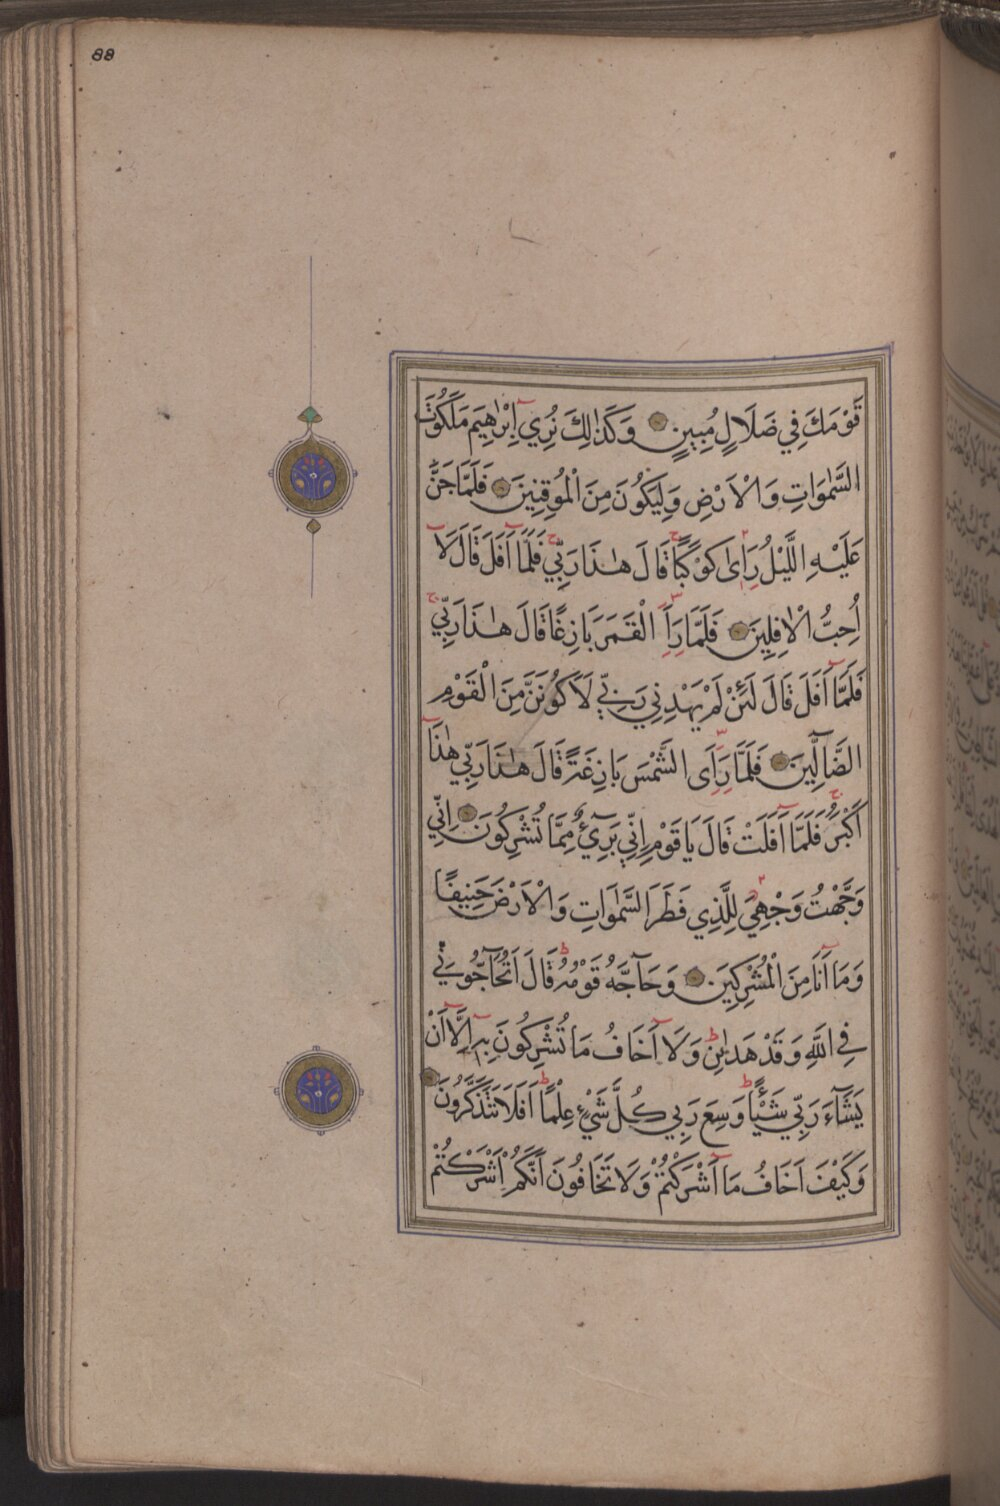 88
قَوْمَكَ فِي ضَلَالٍ مُبِينٍ وَكَذٰلِكَ نُرِي اِبْرٰهِيمَ مَلَكُوتَ
السَّمٰوَاتِ وَالْاَرْضِ وَلِيَكُونَ مِنَ الْمُوقِنِينَ فَلَمَّا جَنَّ
عَلَيْهِ الَّيْلُ رَاٰى كَوْكَبًا قَالَ هٰذَا رَبِّي فَلَمَّا اَفَلَ قَالَ لَا
اُحِبُّ الْاٰفِلِينَ فَلَمَّا رَاَ الْقَمَرَ بَازِغًا قَالَ هٰذَا رَبِّي
فَلَمَّا اَفَلَ قَالَ لَئِنْ لَمْ يَهْدِنِي رَبِّي لَاَكُونَنَّ مِنَ الْقَوْمِ
الضَّالِّينَ فَلَمَّا رَاَى الشَّمْسَ بَازِغَةً قَالَ هٰذَا رَبِّي هٰذَا
اَكْبَرُ فَلَمَّا اَفَلَتْ قَالَ يَا قَوْمِ اِنِّي بَرِيءٌ مِمَّا تُشْرِكُونَ اِنِّي
وَجَّهْتُ وَجْهِيَ لِلَّذِي فَطَرَ السَّمٰوَاتِ وَالْاَرْضَ حَنِيفًا
وَمَا اَنَا مِنَ الْمُشْرِكِينَ وَحَاجَّهُ قَوْمُهُ قَالَ اَتُحَاجُّونِّي
فِي اللّٰهِ وَقَدْ هَدٰينِ وَلَا اَخَافُ مَا تُشْرِكُونَ بِهِ اِلَّا اَنْ
يَشَاءَ رَبِّي شَيْئًا وَسِعَ رَبِّي كُلَّ شَيْءٍ عِلْمًا اَفَلَا تَتَذَكَّرُونَ
وَكَيْفَ اَخَافُ مَا اَشْرَكْتُمْ وَلَا تَخَافُونَ اَنَّكُمْ اَشْرَكْتُمْ